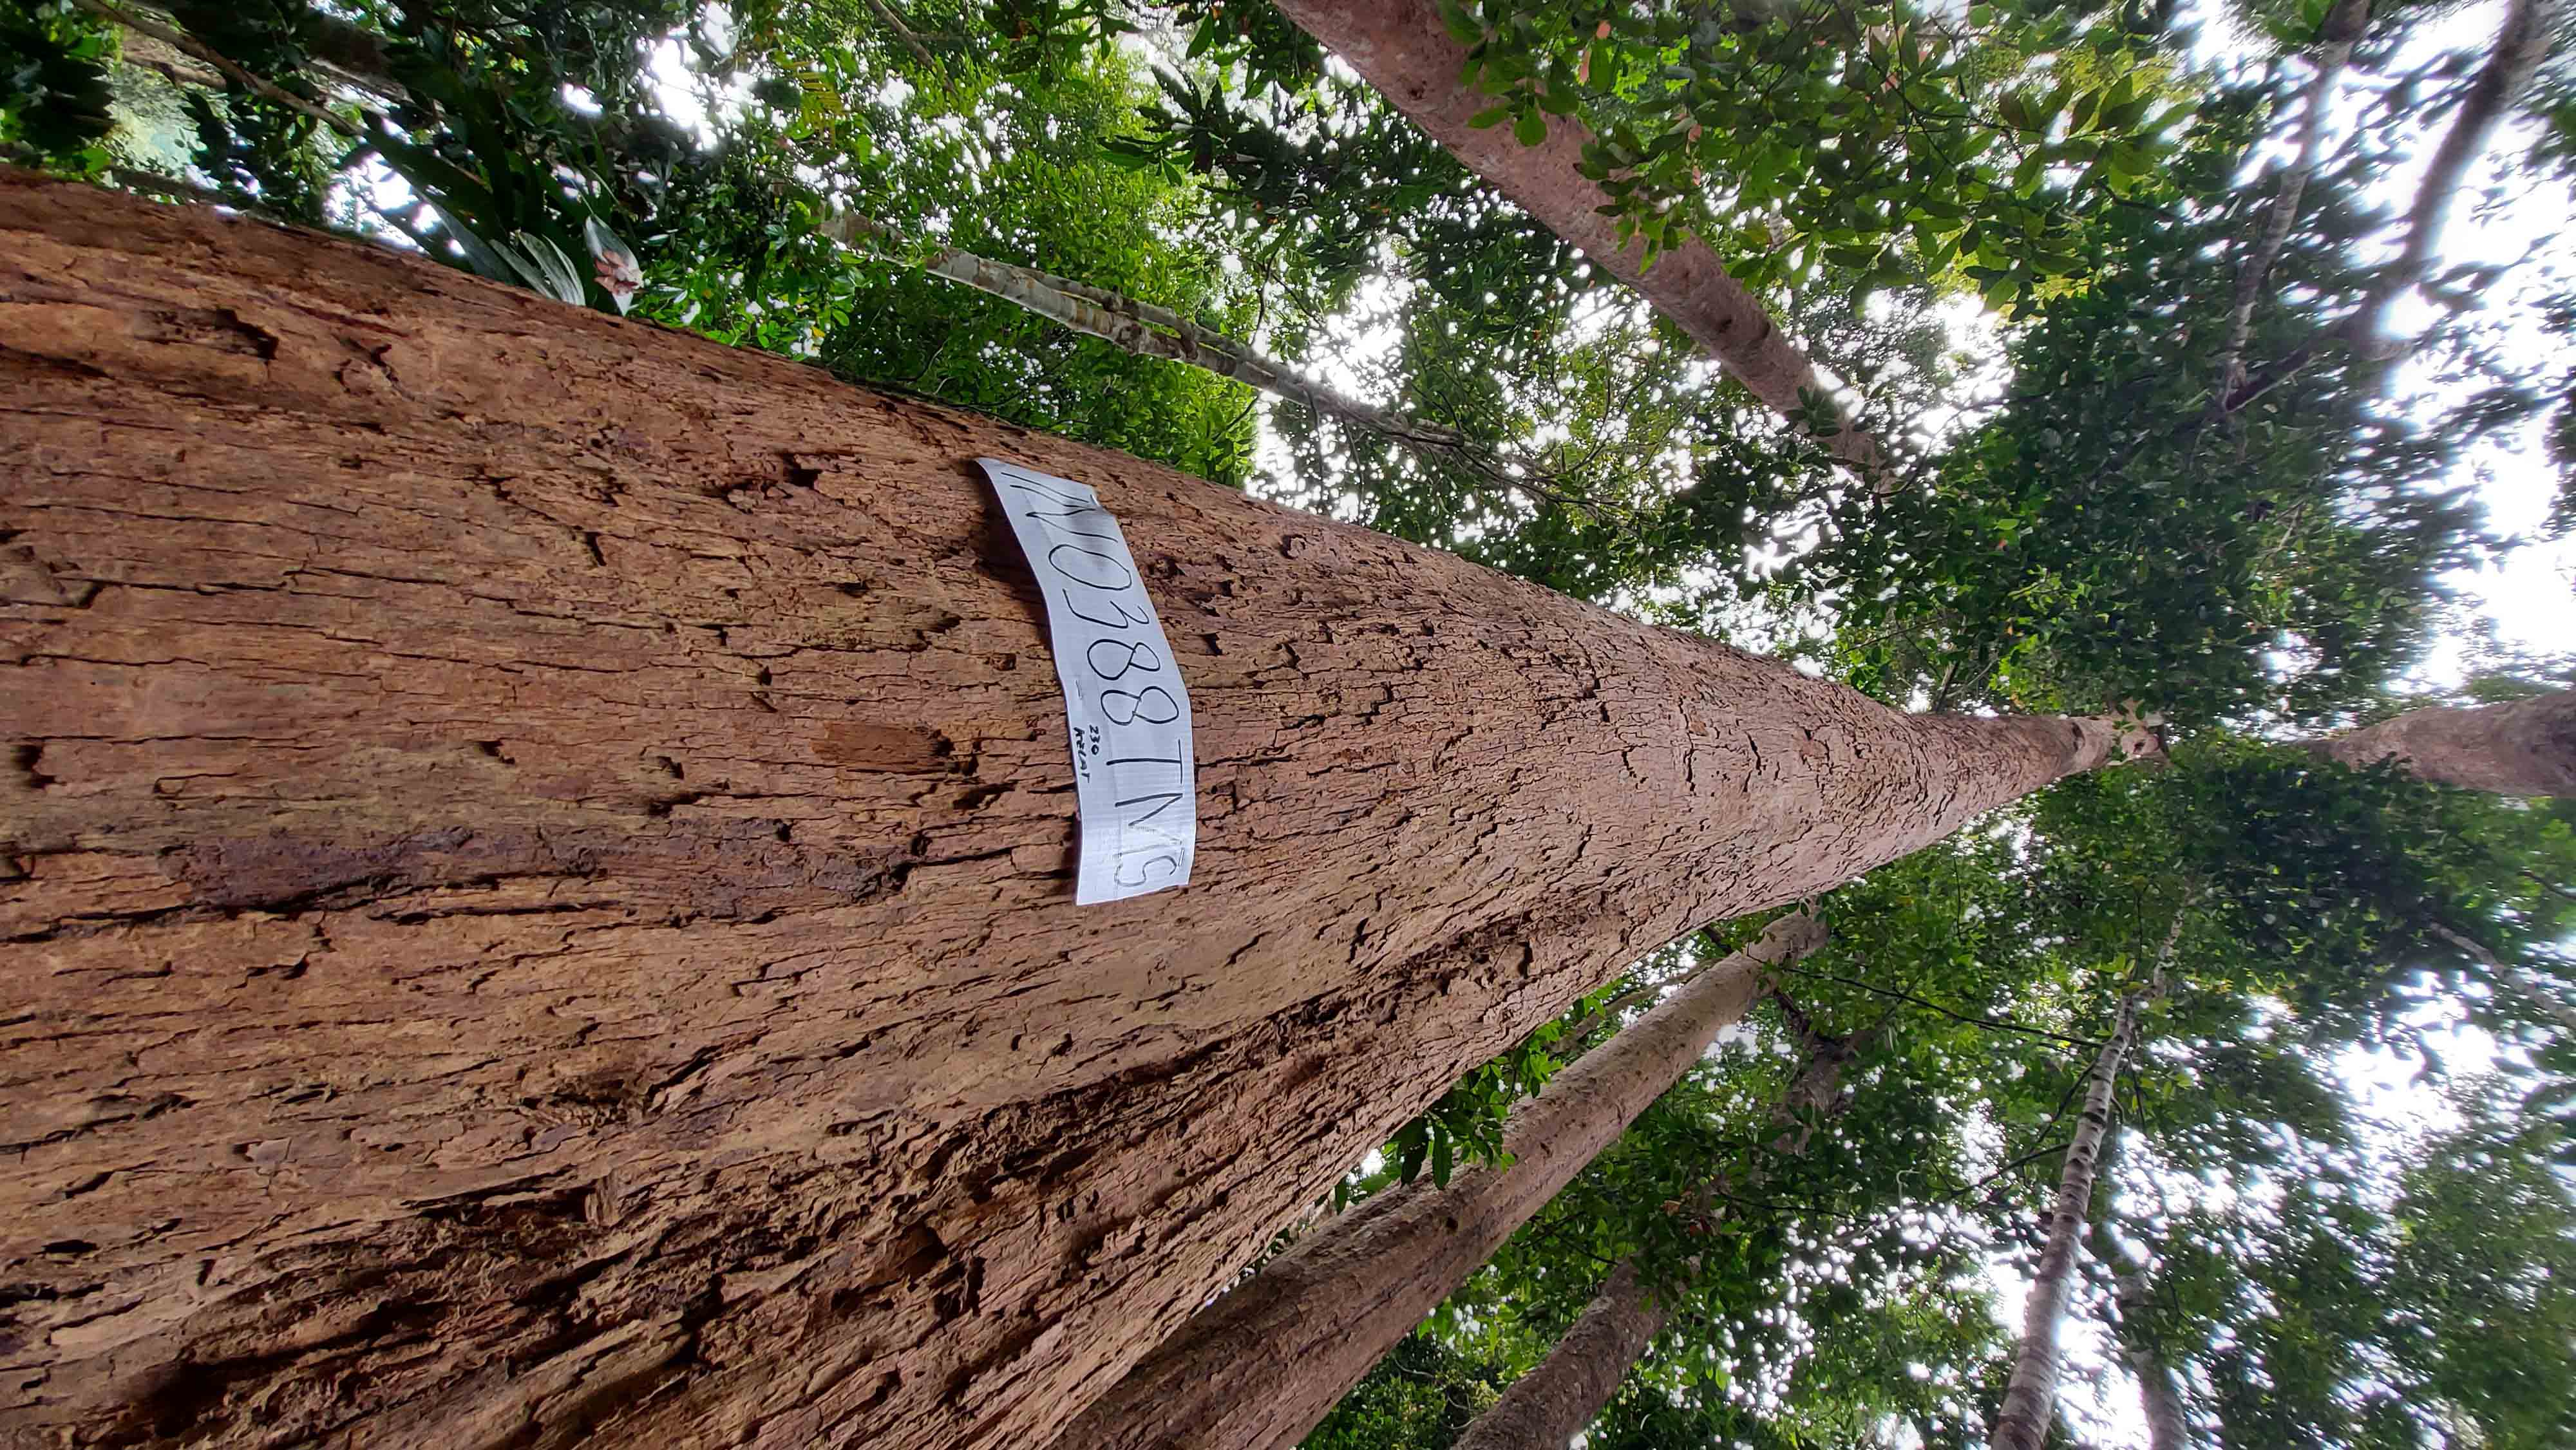 INO388TMS
230
KELAT